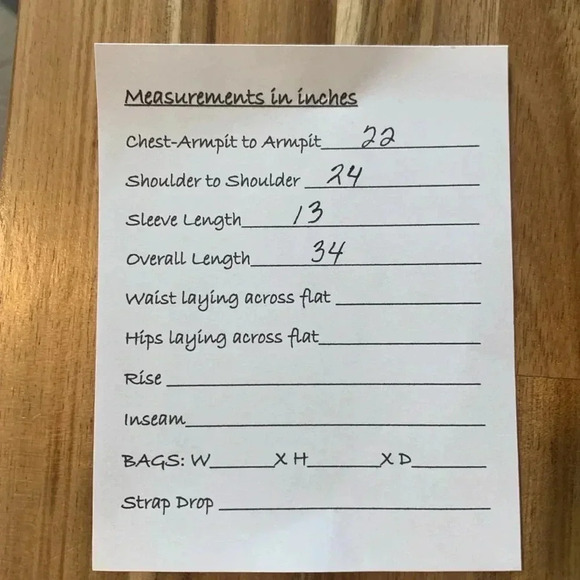 Measurements in inches
Chest-Armpit to Armpit 22
Shoulder to Shoulder 24
Sleeve Length 13
Overall Length 34
Waist laying across flat
Hips laying across flat
Rise
Inseam
BAGS: W______X H______X D______
Strap Drop